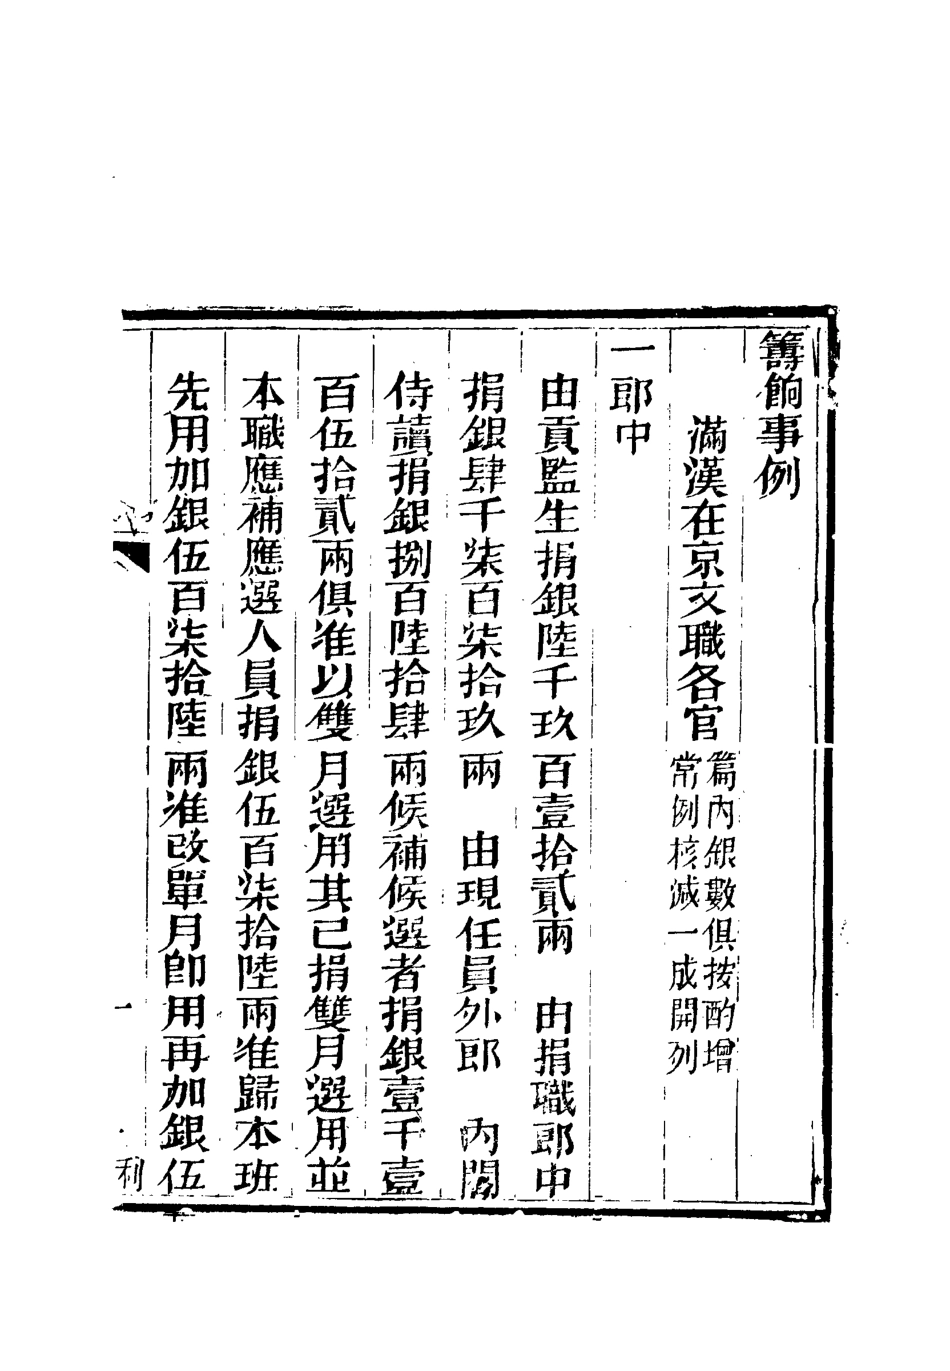 籌餉事例
滿漢在京文職各官
篇內銀數俱按酌增
常例核減一成開列
一郎中
由貢監生捐銀陸千玖百壹拾貳兩　由捐職郎中
捐銀肆千柒百柒拾玖兩　由現任員外郎　內閣
侍讀捐銀捌百陸拾肆兩候補候選者捐銀壹千壹
百伍拾貳兩俱准以雙月選用其已捐雙月選用並
本職應補應選人員捐銀伍百柒拾陸兩准歸本班
先用加銀伍百柒拾陸兩准改單月卽用再加銀伍
一
利